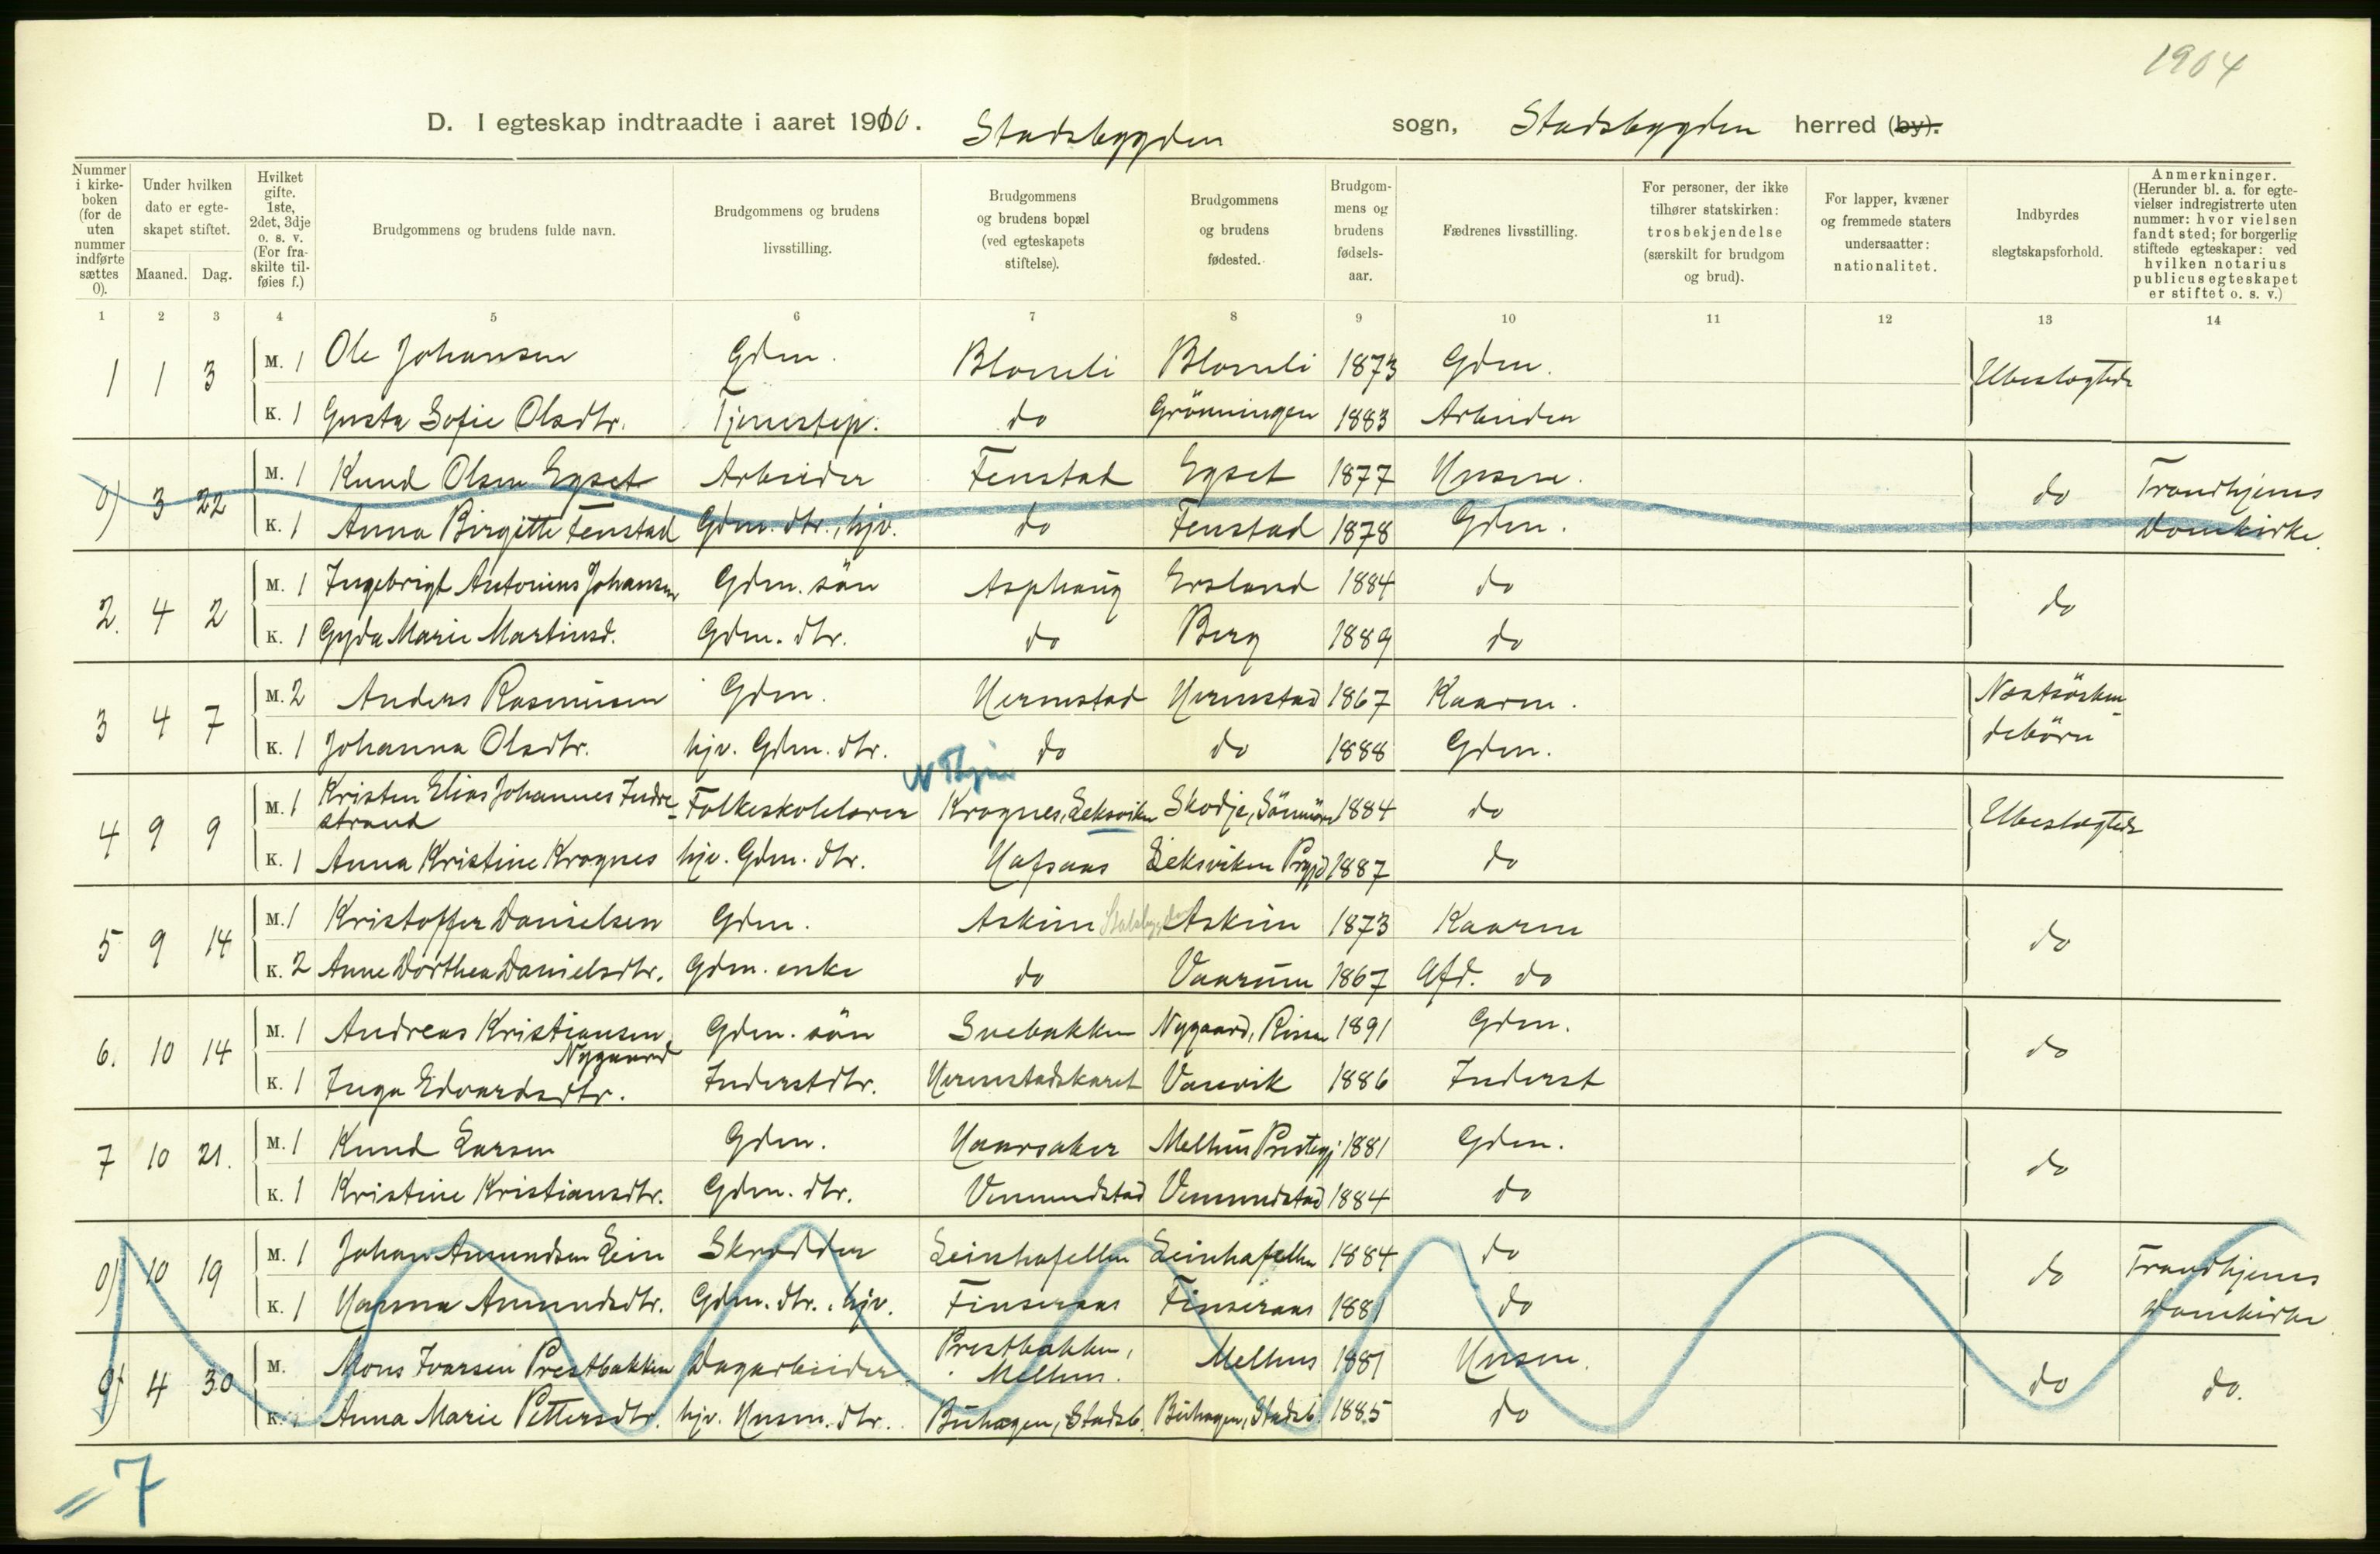 1904
D. I egteskap indtraadte i aaret 1910. Stadsbygden sogn, Stadsbygden herred (by).
Nummer i kirke-boken (for de uten nummer indførte sættes 0).
Under hvilken dato er egte-skapet stiftet.
Maaned. Dag.
Hvilket gifte. 1ste, 2det, 3dje o. s. v. (For fra-skilte til-føies f.)
Brudgommens og brudens fulde navn.
Brudgommens og brudens livsstilling.
Brudgommens og brudens bopæl (ved egteskapets stiftelse).
Brudgommens og brudens fødested.
Brudgom-mens og brudens fødsels-aar.
Fædrenes livsstilling.
For personer, der ikke tilhører statskirken: trosbekjendelse (særskilt for brudgom og brud).
For lapper, kvæner og fremmede staters undersaatter: nationalitet.
Indbyrdes slegtskapsforhold.
Anmerkninger. (Herunder bl. a. for egte-vielser indregistrerte uten nummer: hvor vielsen fandt sted; for borgerlig stiftede egteskaper: ved hvilken notarius publicus egteskapet er stiftet o. s. v.)
1 2 3 4 5 6 7 8 9 10 11 12 13 14
1 1 3 M. 1 Ole Johansen Gdm. Blomli Blomli 1873 Gdm. Ubeslægtede
K. 1 Gusta Sofie Olsdtr. Tjenestep. do Grönningen 1883 Arbeider
0) 3 22 M. 1 Knud Olsen Egset Arbeider Fenstad Egset 1877 Husm. do Trondhjems
K. 1 Anna Birgitte Fenstad Gdm. dtr., hjv. do Fenstad 1878 Gdm. Domkirke.
2. 4 2 M. 1 Ingebrigt Antonius Johansen Gdm. sön Asphaug Ersland 1884 do do
K. 1 Gyda Marie Martinsd. Gdm. dtr. do Berg 1889 do
3 4 7 M. 2 Anders Rasmusen Gdm. Hermstad Hermstad 1867 Kaarm. Næstsösken-
K. 1 Johanna Olsdtr. hjv. Gdm. dtr. do do 1888 Gdm. debörn
4 9 9 M. 1 Kristen Elias Johannes Indre- Folkeskolelærer Krognes, Leksviken Skodje, Sönmöre 1884 do Ubeslægtede
strand
K. 1 Anna Kristine Krognes hjv. Gdm. dtr. Hafsaas Leksviken Prgjd 1887 do
5 9 14 M. 1 Kristoffer Danielsen Gdm. Askim Stadsbygden Askim 1873 Kaarm do
K. 2 Anne Dorthea Danielsdtr. Gdm. enke do Vaarum 1867 Afd. do
6. 10 14 M. 1 Andreas Kristiansen Gdm. sön Svebakken Nygaard, Rissen 1891 Gdm. do
Nygaard
K. 1 Inga Edvardsdtr. Inderstdtr. Hermstadskaret Vanvik 1886 Inderst
7 10 21. M. 1 Knud Larsen Gdm. Haarsaker Melhus Prestegj. 1881 Gdm. do
K. 1 Kristine Kristiansdtr. Gdm. dtr. Vemundstad Vemundstad 1884 do
0) 10 19 M. 1 Johan Amundsen Lein Skrædder Leinhafellen Leinhafellen 1884 do do Trondhjems
K. 1 Hanna Amundsdtr. Gdm. dtr., hjv. Finseraas Finseraas 1881 do Domkirke.
0) 4 30 M. Mons Ivarsen Prestbakken Dagarbeider Prestbakken, Melhus. Melhus 1881 Husm. do do.
K. 1 Anna Marie Pettersdtr. hjv. Husm. dtr. Buhagen, Stadsb. Buhagen, Stadsb. 1885 do
= 7